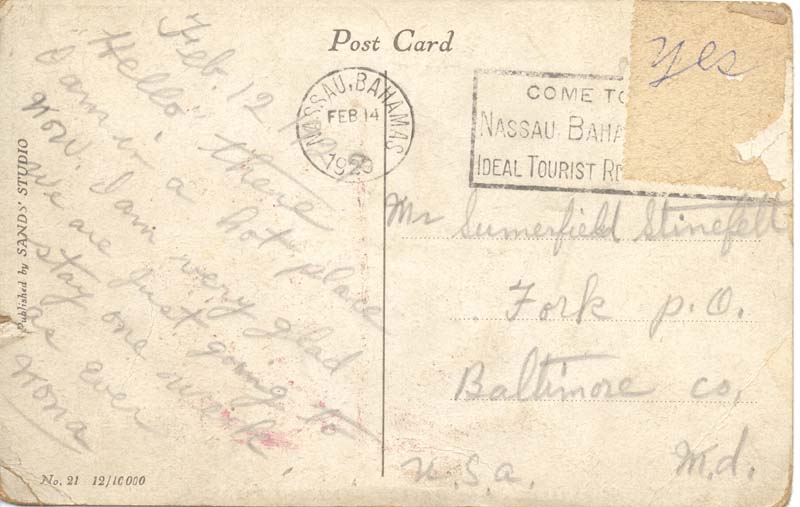 Post Card
Feb. 12
"Hello" there
I am in a hot place
now. I am very glad
we are just going to
stay one week
as ever
Nona
Published by SANDS' STUDIO
No. 21 12/10000
NASSAU, BAHAMAS
FEB 14
1929
COME TO
NASSAU BAHA
IDEAL TOURIST RE
yes
Mr Sumerfield Stinefelt
Fork p.o.
Baltimore co,
Md.
U.S.a.